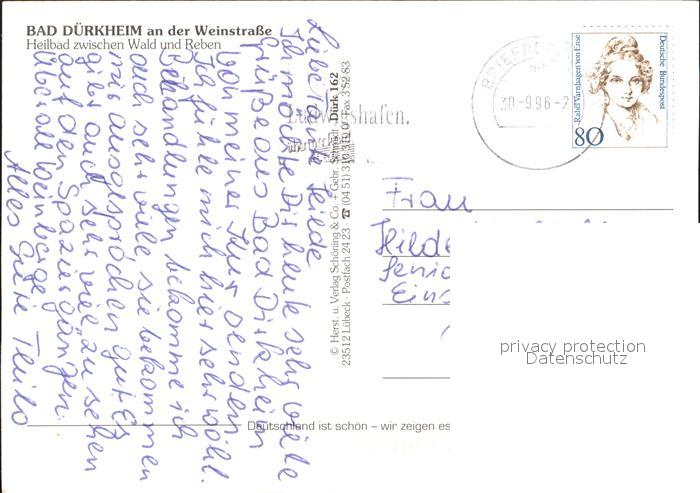 BAD DÜRKHEIM an der Weinstraße
Heilbad zwischen Wald und Reben
Liebe Tante Hilde
Ich möchte Dir heute sehr viele
Grüße aus Bad Dürkheim
von meiner Kur senden
Ich fühle mich hier sehr wohl.
Behandlungen bekomme ich
auch sehr viele, sie bekommen
mir ausgesprochen gut. Es
gibt auch sehr viel zu sehen
auf den Spaziergängen.
Überall Weinberge.
Alles Gute Thilo
© Herst. u. Verlag Schöning & Co. + Gebr. Schmidt Dürk 162
23512 Lübeck · Postfach 24 23 ☎ (04 51) 3 10 31 0 / Fax 3 52 83
Ludwigshafen.
BRIEFZ
30-9.96-2
Deutsche Bundespost
Rahel Varnhagen von Ense
80
Frau
Hilde
Senio
Eins
privacy protection
Datenschutz
Deutschland ist schön – wir zeigen es